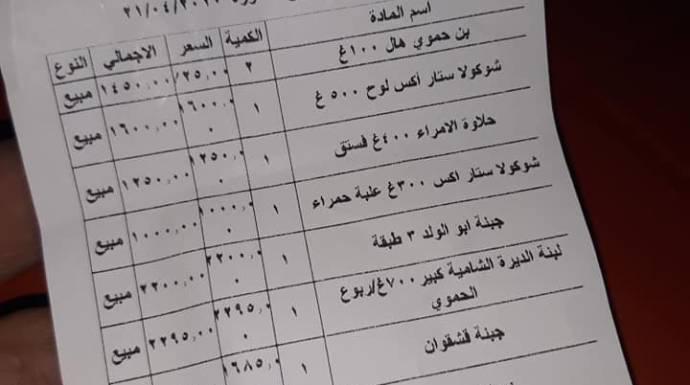 ٢١/٠٤/٢٠
اسم المادة الكمية السعر الاجمالي النوع
بن حموي هال ١٠٠غ ٢ ٧٢٥,٠٠ ١٤٥٠,٠٠ مبيع
شوكولا ستار أكس لوح ٥٠٠ غ ١ ١٦٠٠,٠٠ ١٦٠٠,٠٠ مبيع
حلاوة الامراء ٤٠٠غ فستق ١ ١٢٥٠,٠٠ ١٢٥٠,٠٠ مبيع
شوكولا ستار اكس ٣٠٠غ علبة حمراء ١ ١٠٠٠,٠٠ ١٠٠٠,٠٠ مبيع
جبنة ابو الولد ٣ طبقة ١ ٢٢٠٠,٠٠ ٢٢٠٠,٠٠ مبيع
لبنة الديرة الشامية كبير ٧٠٠غ/ربوع
الحموي ١ ٢٢٩٥,٠٠ ٢٢٩٥,٠٠ مبيع
جبنة قشقوان ١ ١٦٨٥,٠